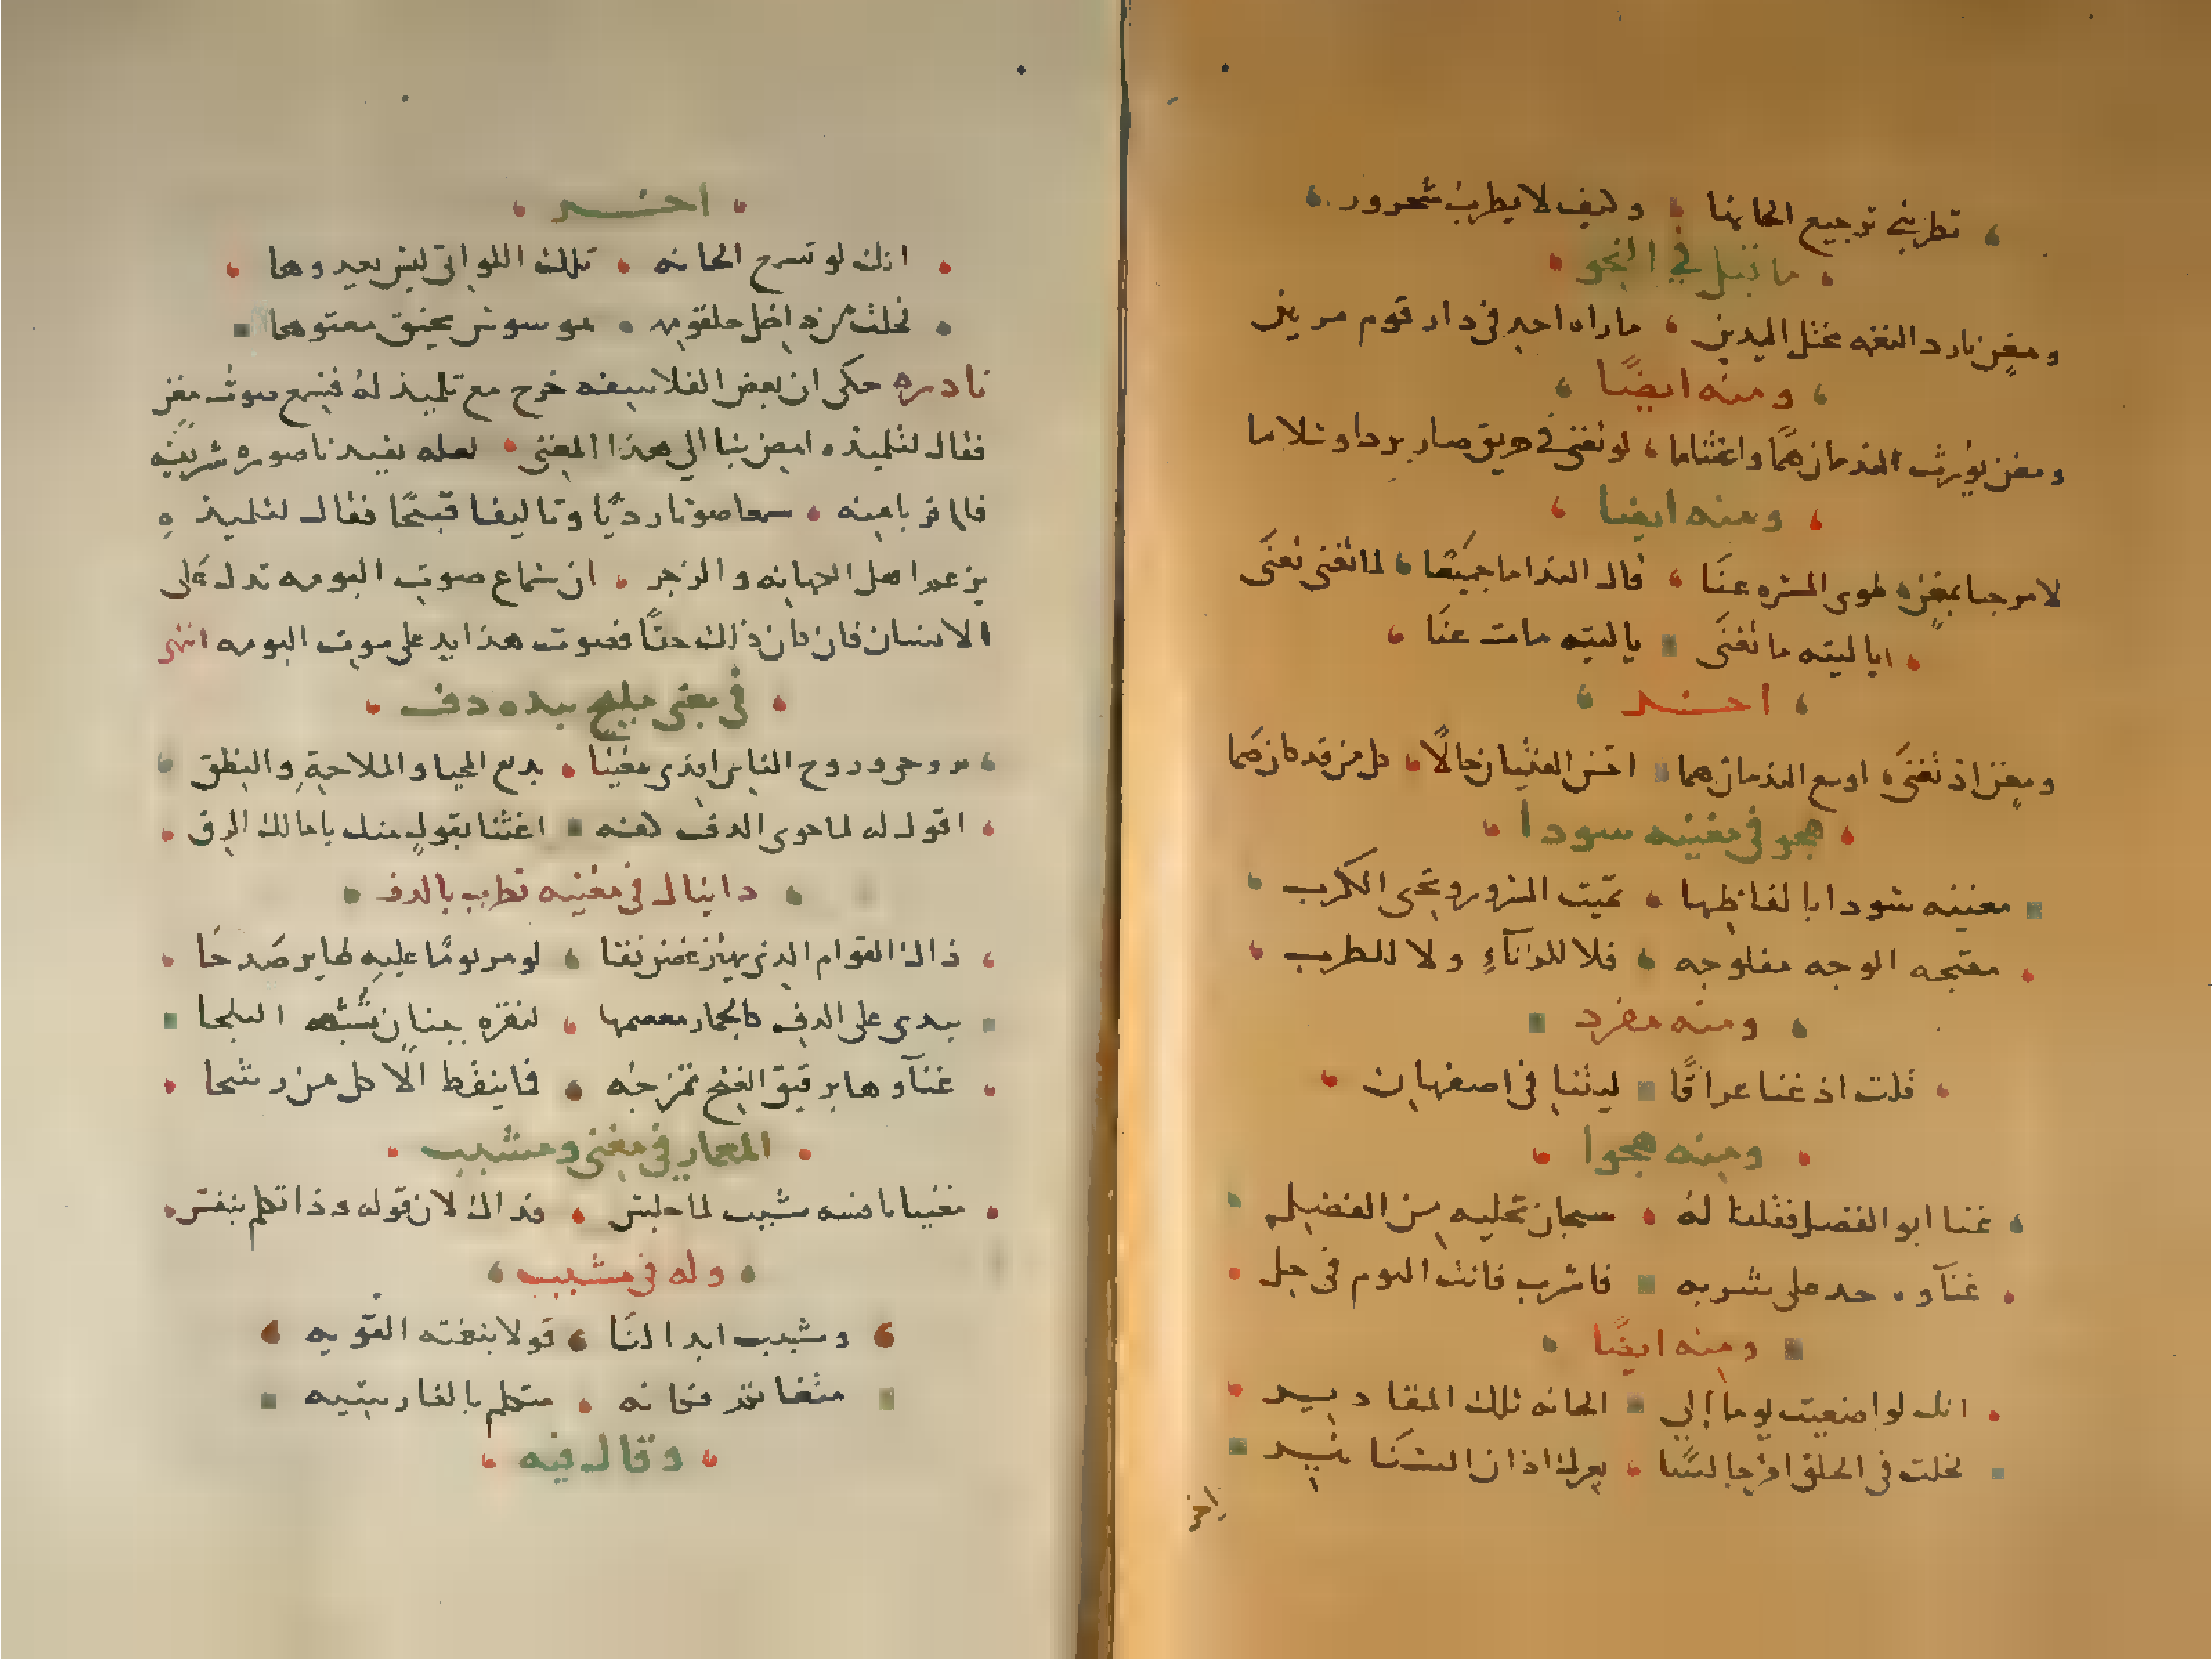 تطربني ترجيع الحانها وكيف لا يطرب شحرور
ما قيل في الهجو
ومغن بارد النغمه مختل اليدين ما راه احد في دار قوم مرتين
ومنه ايضًا
ومغن يورث الندمان همًا واغتناما لو تغنى في حريق صار بردا وسلاما
ومنه ايضا
لا مرحبا بمغن طوى المسره عنا قال الندامى جميعًا لما تغنى تعنى
ايا ليته ما تغنى يا ليته مات عنا
اخر
ومغن اذ تغنى اوسع الندمان هما احسن الفتيان حالًا كل من قد كان
هجو في مغنيه سودا
مغنيه سودا بالفاظها تميت السرور وتحيى الكرب
مقبحه الوجه مفلوجه فلا للزناءِ ولا للطرب
ومنه مفرد
قلت اذ غنا عراقًا ليتنا في اصفهان
ومنه هجوا
غنا ابو الفضل فقلنا له سبحان تخليه من الفضل
غناوه حد على شربه فاشرب فانت اليوم في حل
ومنه ايضًا
انك لو اصغيت يوما الى الحانه تلك المقاديد
لخلت في الحلق يعرك اذان
اخر
اخر
انك لو تسمع الحانه تلك اللواتي ليس يعدوها
لخلت من داخل حلقومه موسوس يخنق معتوها
نادره حكى ان بعض الفلاسفه خرج مع تلميذ له فسمع صوت مغن
فقال لتلميذه امض بنا الى هذا المغنى لعله يفيدنا صوره شريفه
فلما قربا منه سمعا صوتا رديًا وتاليفا قبيحًا فقال لتلميذه
يزعم اهل الكهانه والزجر ان سماع صوت البومه تدل على
الانسان فان كان ذلك حقًا فصوت هذا يدل على موت البومه انتهى
في مغنى مليح بيده دف
بروحى وروح الناس افدى مغنيا بديع المحيا والملاحةِ والنطق
اقول له لما حوى الدف كفه اغثنا بقول منك يا مالك الرق
دانيال في مغنيه تطرب بالدف
ذاك القوام الذي يهتز غصن نقا لو مر يومًا عليه طاير صدحا
يبدى على الدف كالجمار معصمها لنقره ببنان تشبه البلحا
غناوها برقيق الغنج تمزجه فلا ينقط الا كل من رشحا
المعمار في مغنى ومشبب
مغنيا نافسه مشبب لما جلس فذاك لان قوله وذا تكلم بنفس
وله في مشبب
ومشبب ابدا لنا قولا بنغمته القويه
متكلم بالفار
وقال فيه